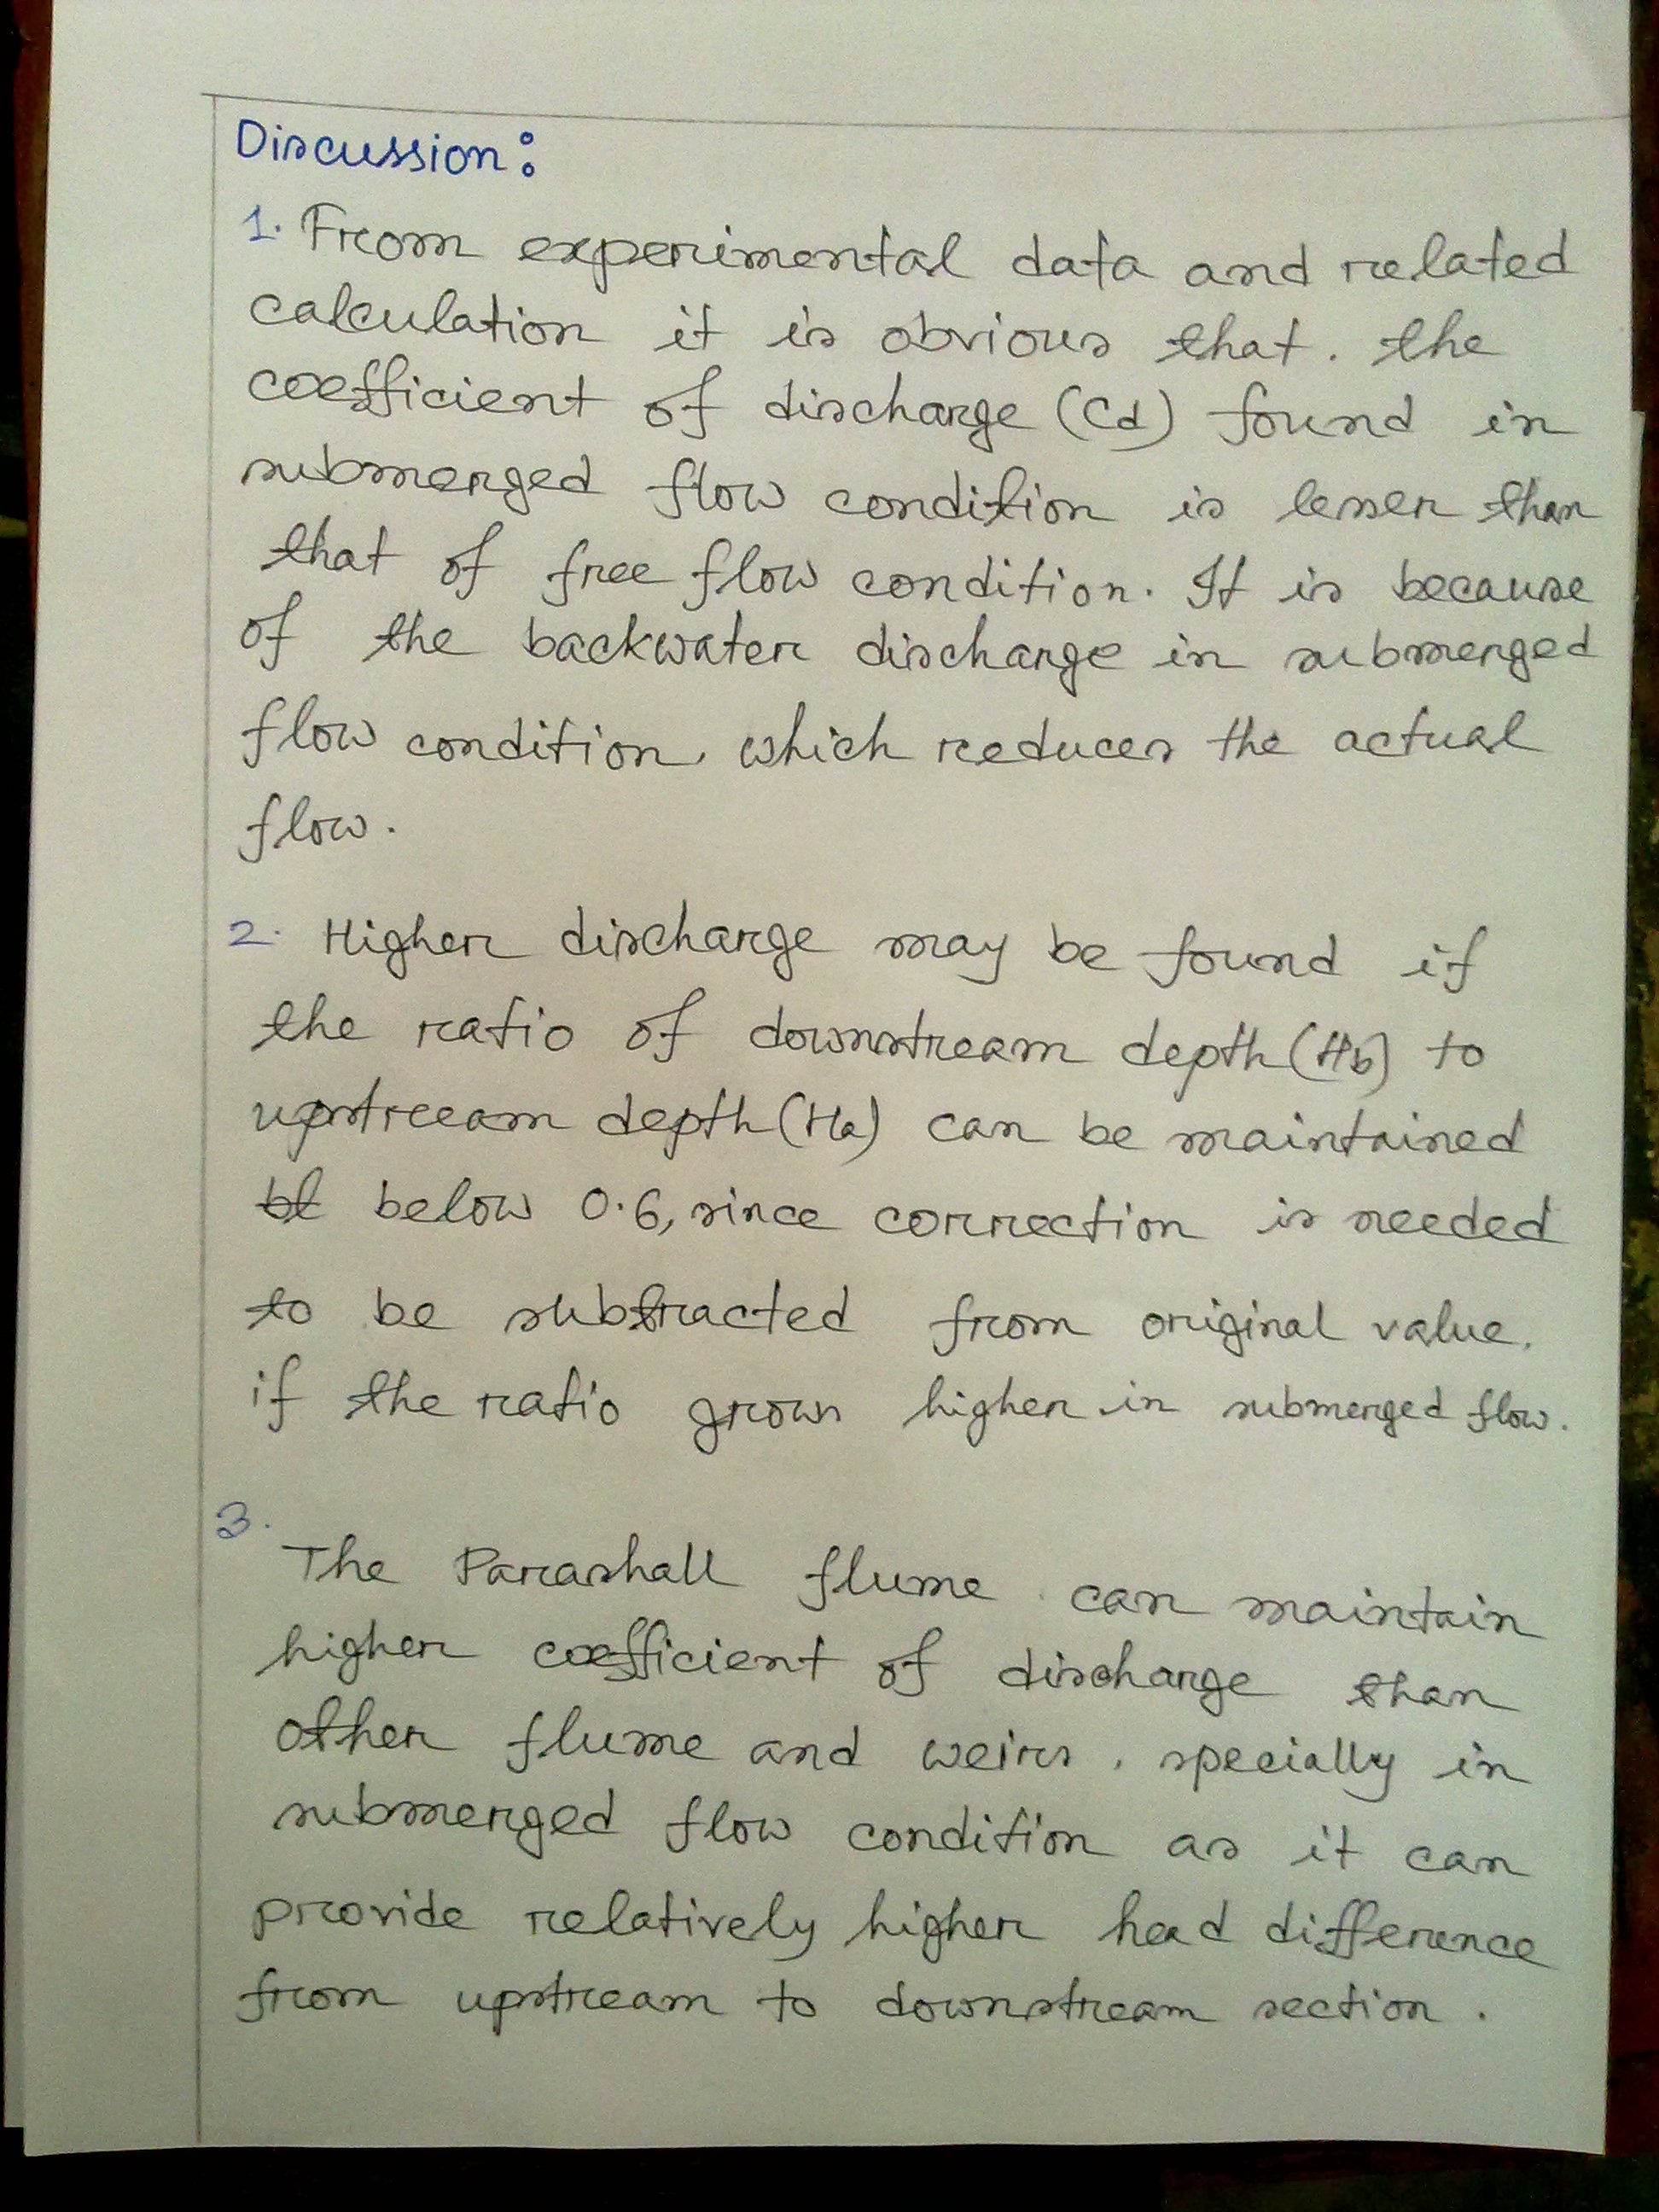 Discussion:
1. From experimental data and related
calculation it is obvious that. the
coefficient of discharge (Cd) found in
submerged flow condition is lesser than
that of free flow condition. It is because
of the backwater discharge in submerged
flow condition, which reduces the actual
flow.
2. Higher discharge may be found if
the ratio of downstream depth (Hb) to
upstreeam depth (Ha) can be maintained
bl below 0.6, since correction is needed
to be subtracted from original value.
if the ratio grows higher in submerged flow.
3.
The Parashall flume can maintain
higher coefficient of discharge than
other flume and weirs, specially in
submerged flow condition as it can
provide relatively higher head difference
from upstream to downstream section.